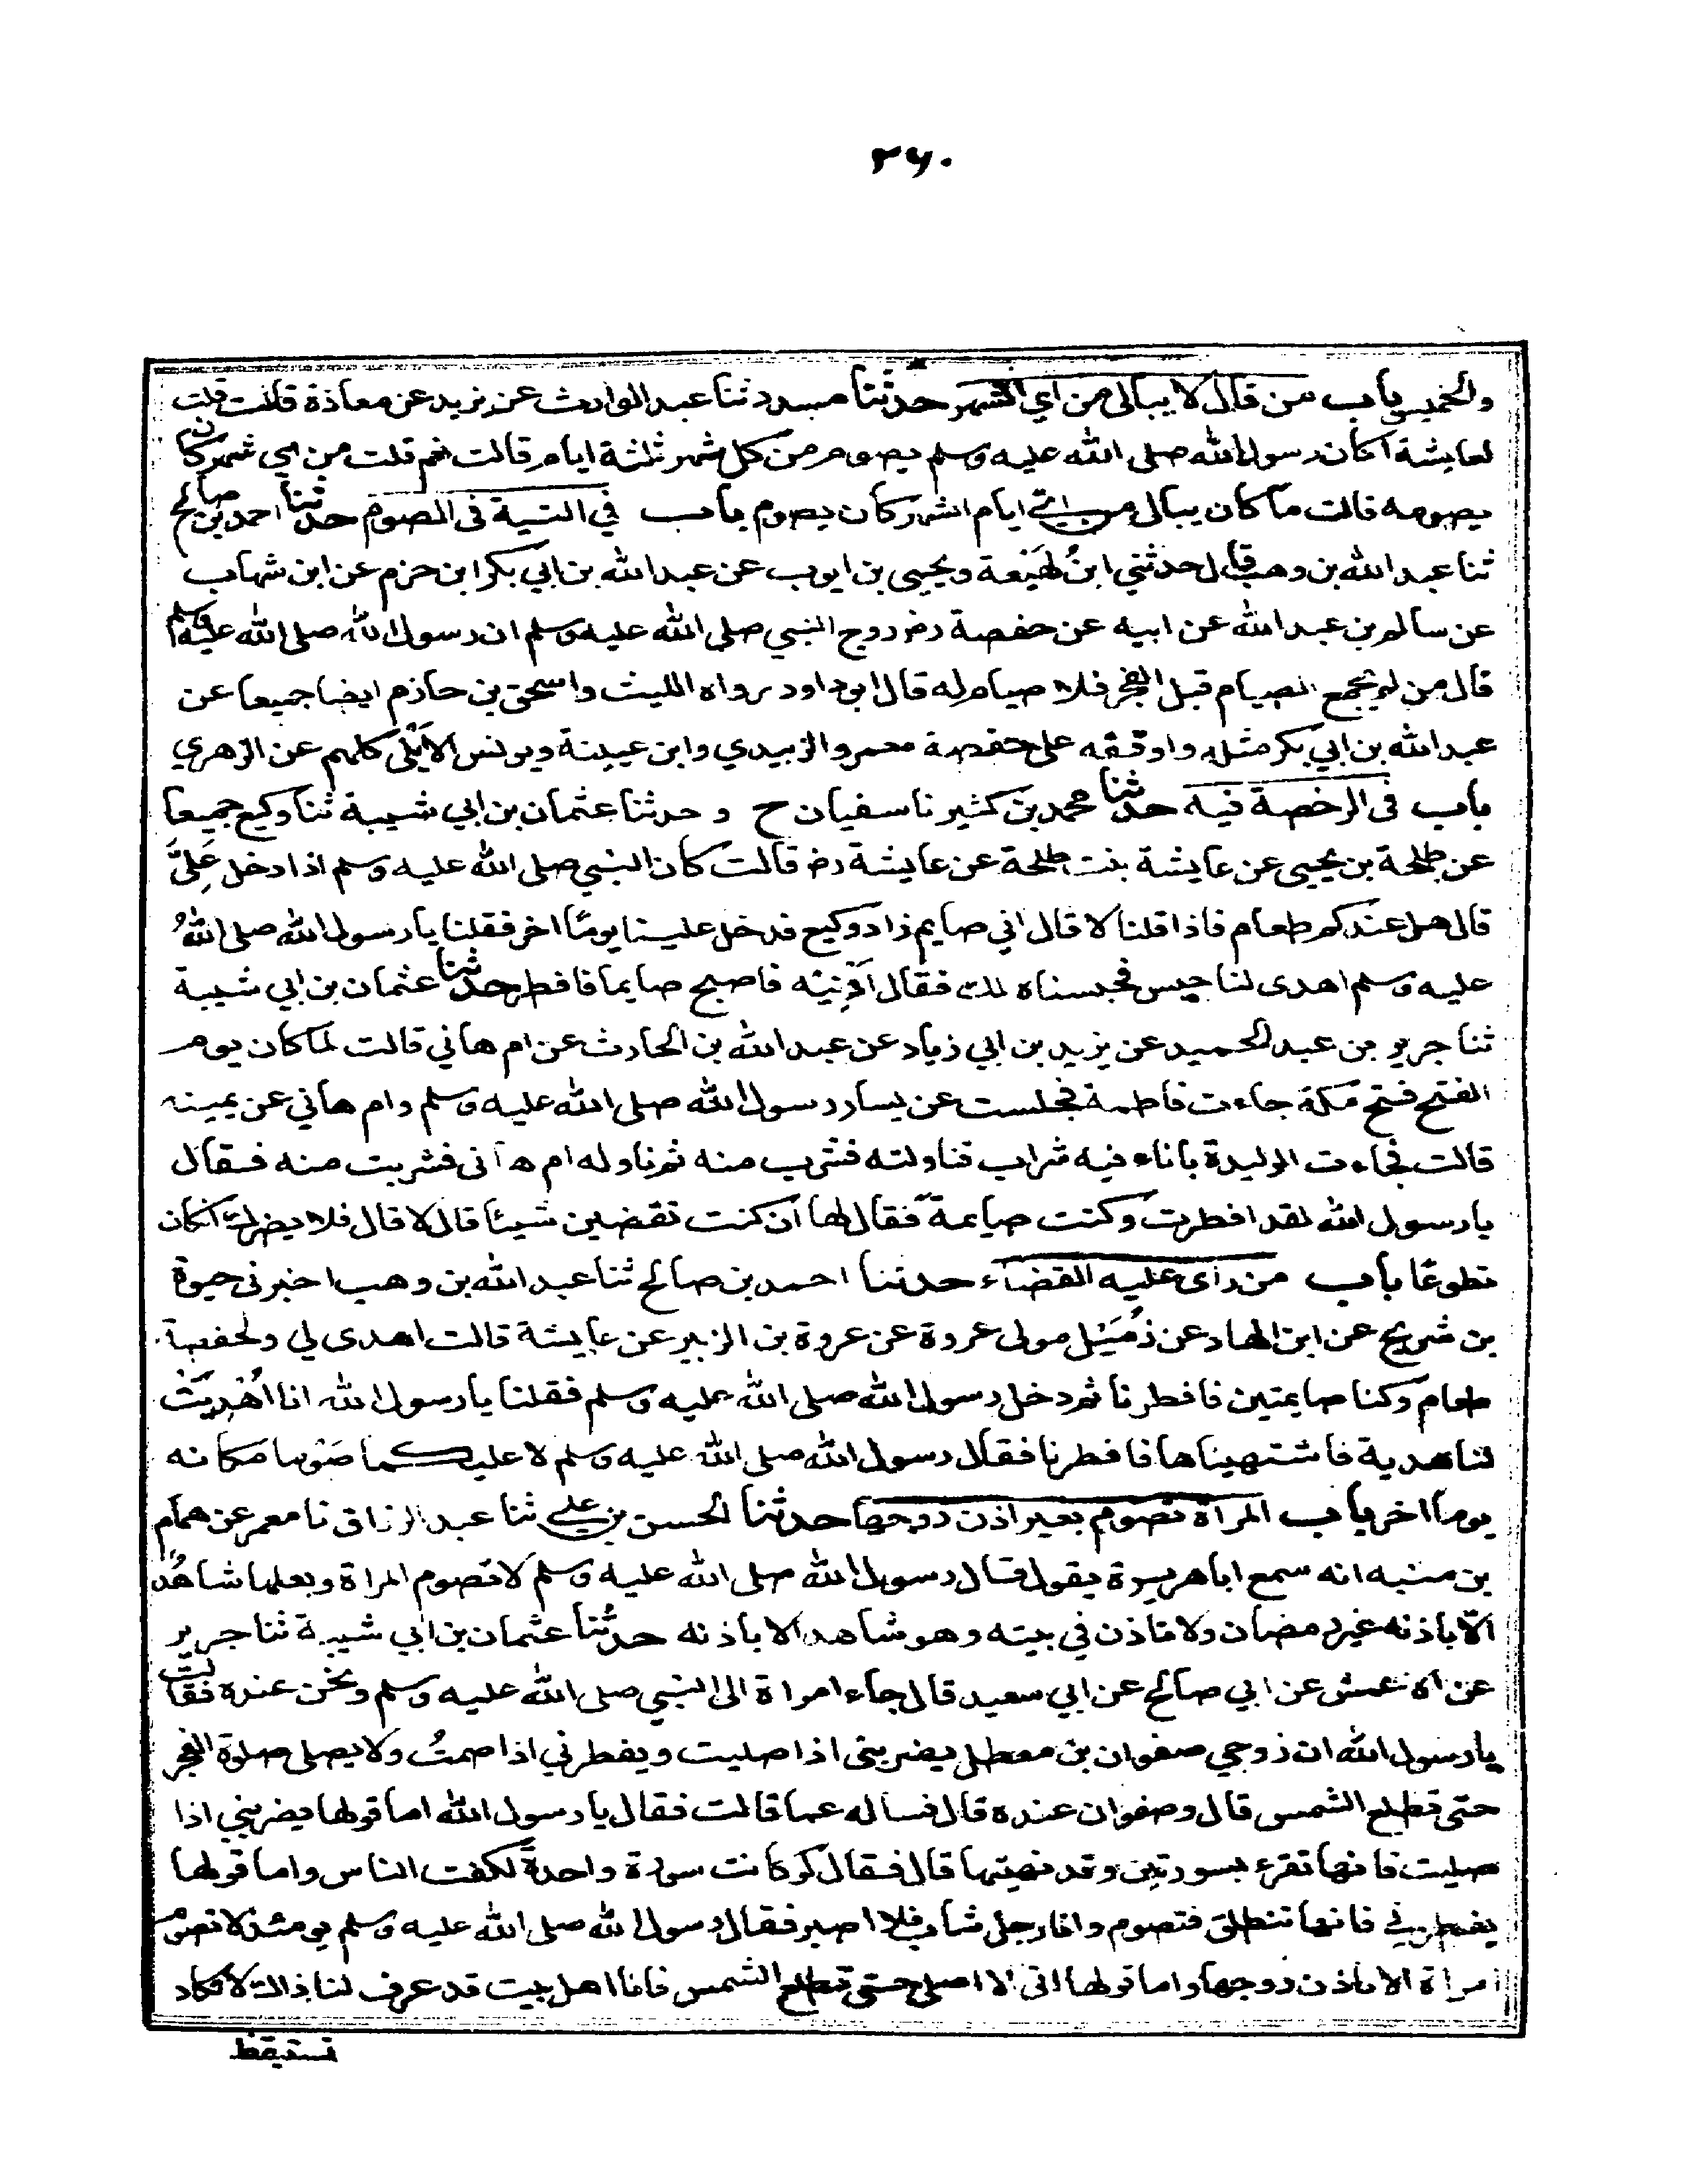 ۲۶۰
والخميس باب من قال لا يبالي من اي الشهر حدثنا مسدد ثنا عبد الوارث عن يزيد عن معاذة قالت قلت
لعايشة اكان رسول الله صلى الله عليه وسلم يصوم من كل شهر ثلثة ايام قالت نعم قلت من اي شهر كان
يصومه قالت ما كان يبالي من اي ايام الشهر كان يصوم باب في النية في الصوم حدثنا احمد بن صالح
ثنا عبد الله بن وهب قال حدثني ابن لهيعة ويحيى بن ايوب عن عبد الله بن ابي بكر ابن حزم عن ابن شهاب
عن سالم بن عبد الله عن ابيه عن حفصة رض زوج النبي صلى الله عليه وسلم ان رسول الله صلى الله عليه وسلم
قال من لم يجمع الصيام قبل الفجر فلا صيام له قال ابو داود رواه الليث واسحق بن حازم ايضا جميعا عن
عبد الله بن ابي بكر مثله واوقفه على حفصة معمر والزبيدي وابن عيينة ويونس الايلي كلهم عن الزهري
باب في الرخصة فيه حدثنا محمد بن كثير نا سفيان ح و حدثنا عثمان بن ابي شيبة ثنا وكيع جميعا
عن طلحة بن يحيى عن عايشة بنت طلحة عن عايشة رض قالت كان النبي صلى الله عليه وسلم اذا دخل عَلِيَّ
قال هل عندكم طعام فاذا قلنا لا قال اني صايم زاد وكيع فدخل علينا يوما اخر فقلنا يا رسول الله صلى اللهُ
عليه وسلم اهدى لنا حيس فحبسناه لك فقال ادنيه فاصبح صايما فافطر حدثنا عثمان بن ابي شيبة
ثنا جرير بن عبد الحميد عن يزيد بن ابي زياد عن عبد الله بن الحارث عن ام هاني قالت لما كان يوم
الفتح فتح مكة جاءت فاطمة فجلست عن يسار رسول الله صلى الله عليه وسلم وام هاني عن يمينه
قالت فجاءت الوليدة باناء فيه شراب فناولته فشرب منه ثم ناوله ام هانى فشربت منه فقال
يا رسول الله لقد افطرت وكنت صايمة فقال لها اكنت تقضين شيئا قال لا قال فلا يضرك انكان
تطوعًا باب من راى عليه القضاء حدثنا احمد بن صالح ثنا عبد الله بن وهب اخبرنى حيوة
بن شريح عن ابن الهاد عن زُمَيْل مولى عروة عن عروة بن الزبير عن عايشة قالت اهدى لي ولحفصة
طعام وكنا صايمتين فافطرنا ثم دخل رسول الله صلى الله عليه وسلم فقلنا يا رسول الله انا اُهْدِيَتْ
لنا هدية فاشتهيناها فافطرنا فقال رسول الله صلى الله عليه وسلم لا عليكما صوما مكانه
يوما اخر باب المراة تصوم بغير اذن زوجها حدثنا الحسن بن علي ثنا عبد الرزاق نا معمر عن همام
بن منبه انه سمع ابا هريرة يقول قال رسول الله صلى الله عليه وسلم لا تصوم المراة وبعلها شاهدٌ
الّا باذنه غير رمضان ولا تاذن في بيته وهو شاهد الا باذنه حدثنا عثمان بن ابي شيبة ثنا جرير
عن الاعمش عن ابي صالح عن ابي سعيد قال جاء امراة الى النبي صلى الله عليه وسلم ونحن عنده فقالت
يا رسول الله ان زوجي صفوان بن معطل يضربنى اذا صليت ويفطرني اذا صمتُ ولا يصلى صلوة الفجر
حتى تطلع الشمس قال وصفوان عنده قال فساله عما قالت فقال يا رسول الله اما قولها يضربني اذا
صليت فانها تقرء بسورتين وقد نهيتها قال فقال لو كانت سورة واحدة لكفت الناس واما قولها
يفطرني فانها تنطلق فتصوم وانا رجل شاب فلا اصبر فقال رسول الله صلى الله عليه وسلم يومئذ لا تصوم
امراة الا باذن زوجها واما قولها انى لا اصلي حتى تطلع الشمس فانا اهل بيت قد عرف لنا ذاك لا نكاد
نستيقظ